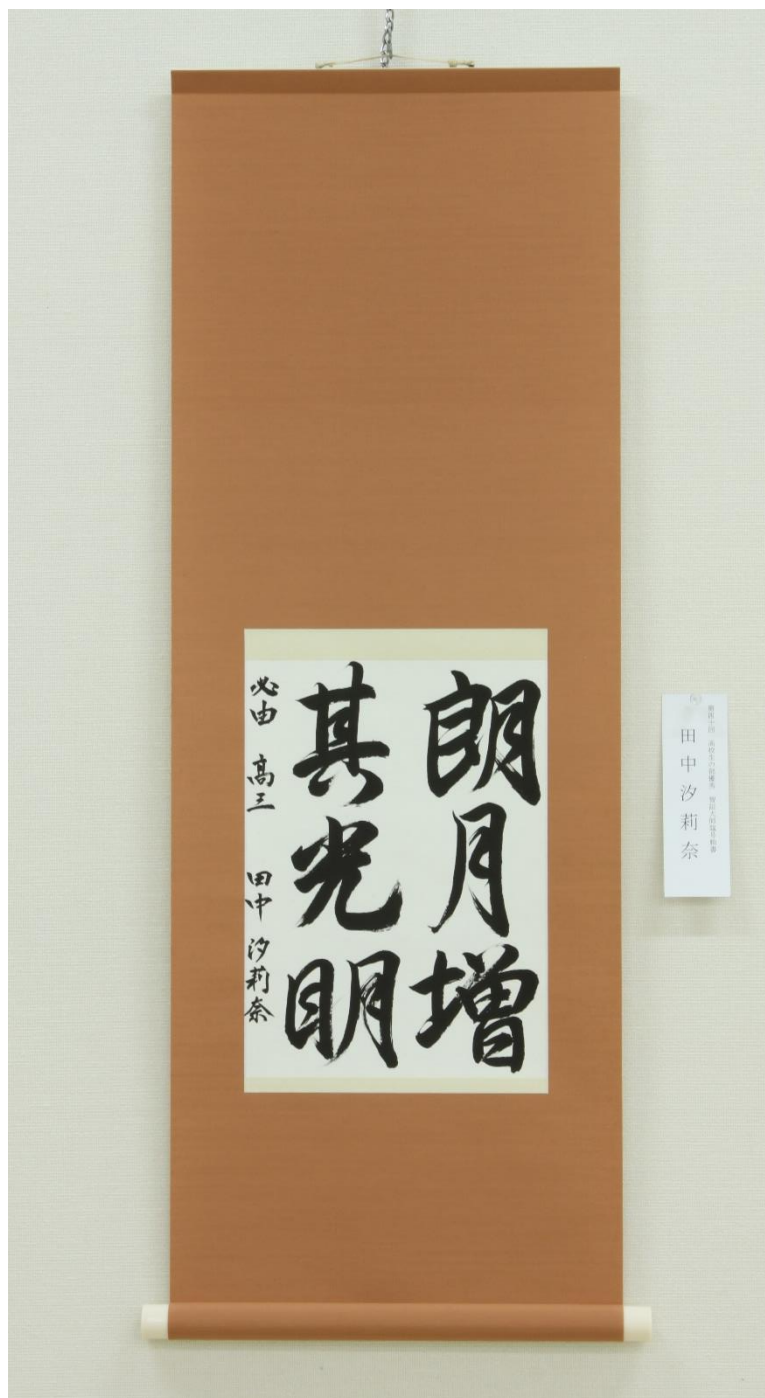 朗月増
其光明
必由 高三 田中 汐莉奈
田中汐莉奈